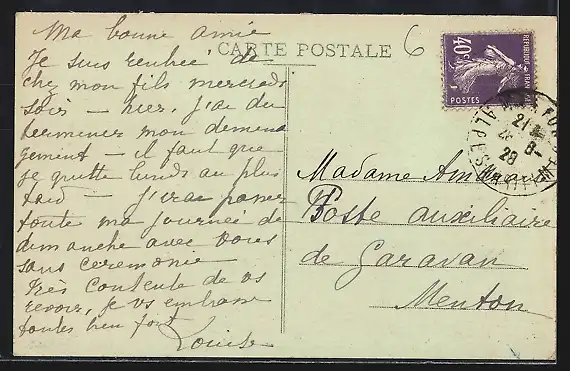 CARTE POSTALE
6
Ma bonne amie
Je suis rentrée de
chez mon fils mercredi
soir – hier, j'ai du
terminer mon demena
gement – il faut que
je quitte lundi au plus
tard – j'irai passer
toute ma journée de
dimanche avec vous
sans ceremonie
Très contente de vs
revoir, je vs embrasse
toutes bien fort
Louise
40c
REPUBLIQUE FRANÇAISE
POSTES
21
8-
28
Madame
Poste auxiliaire
de Garavan
Menton